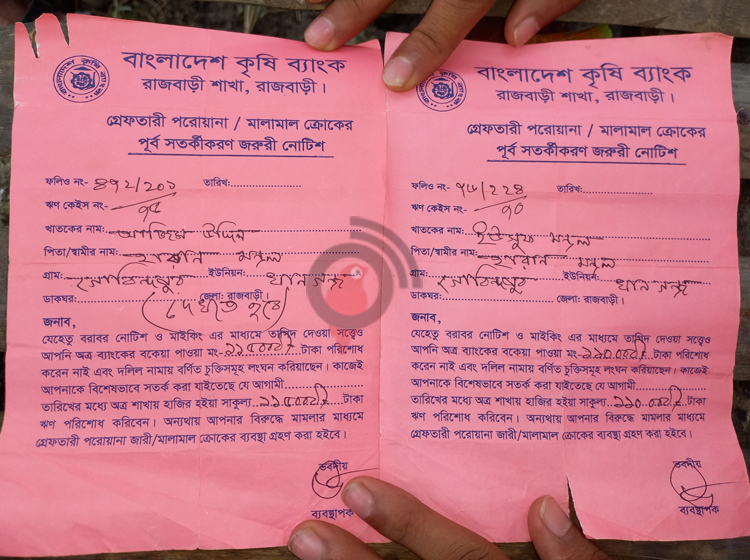 বাংলাদেশ কৃষি ব্যাংক
রাজবাড়ী শাখা, রাজবাড়ী।
গ্রেফতারী পরোয়ানা / মালামাল ক্রোকের
পূর্ব সতর্কীকরণ জরুরী নোটিশ
ফলিও নং- ৪৭২/২০১ তারিখ:
ঋণ কেইস নং-
খাতকের নাম: উদ্দিন
পিতা/স্বামীর নাম: হারান মন্ডল
গ্রাম: গোবিন্দপুর ইউনিয়ন: খানগঞ্জ
ডাকঘর: জেলা: রাজবাড়ী।
(দেখাতে হবে)
জনাব,
যেহেতু বরাবর নোটিশ ও মাইকিং এর মাধ্যমে তাগিদ দেওয়া সত্ত্বেও
আপনি অত্র ব্যাংকের বকেয়া পাওনা মং- টাকা পরিশোধ
করেন নাই এবং দলিল নামায় বর্ণিত চুক্তিসমূহ লংঘন করিয়াছেন। কাজেই
আপনাকে বিশেষভাবে সতর্ক করা যাইতেছে যে আগামী
তারিখের মধ্যে অত্র শাখায় হাজির হইয়া সাকুল্য টাকা
ঋণ পরিশোধ করিবেন। অন্যথায় আপনার বিরুদ্ধে মামলার মাধ্যমে
গ্রেফতারী পরোয়ানা জারী/মালামাল ক্রোকের ব্যবস্থা গ্রহণ করা হইবে।
ভবদীয়
ব্যবস্থাপক
বাংলাদেশ কৃষি ব্যাংক
রাজবাড়ী শাখা, রাজবাড়ী।
গ্রেফতারী পরোয়ানা / মালামাল ক্রোকের
পূর্ব সতর্কীকরণ জরুরী নোটিশ
ফলিও নং- তারিখ:
ঋণ কেইস নং- ৭০
খাতকের নাম: ইউসুফ মন্ডল
পিতা/স্বামীর নাম: হারান মন্ডল
গ্রাম: গোবিন্দপুর ইউনিয়ন: খানগঞ্জ
ডাকঘর: জেলা: রাজবাড়ী।
জনাব,
যেহেতু বরাবর নোটিশ ও মাইকিং এর মাধ্যমে তাগিদ দেওয়া সত্ত্বেও
আপনি অত্র ব্যাংকের বকেয়া পাওনা মং- টাকা পরিশোধ
করেন নাই এবং দলিল নামায় বর্ণিত চুক্তিসমূহ লংঘন করিয়াছেন। কাজেই
আপনাকে বিশেষভাবে সতর্ক করা যাইতেছে যে আগামী
তারিখের মধ্যে অত্র শাখায় হাজির হইয়া সাকুল্য টাকা
ঋণ পরিশোধ করিবেন। অন্যথায় আপনার বিরুদ্ধে মামলার মাধ্যমে
গ্রেফতারী পরোয়ানা জারী/মালামাল ক্রোকের ব্যবস্থা গ্রহণ করা হইবে।
ভবদীয়
ব্যবস্থাপক